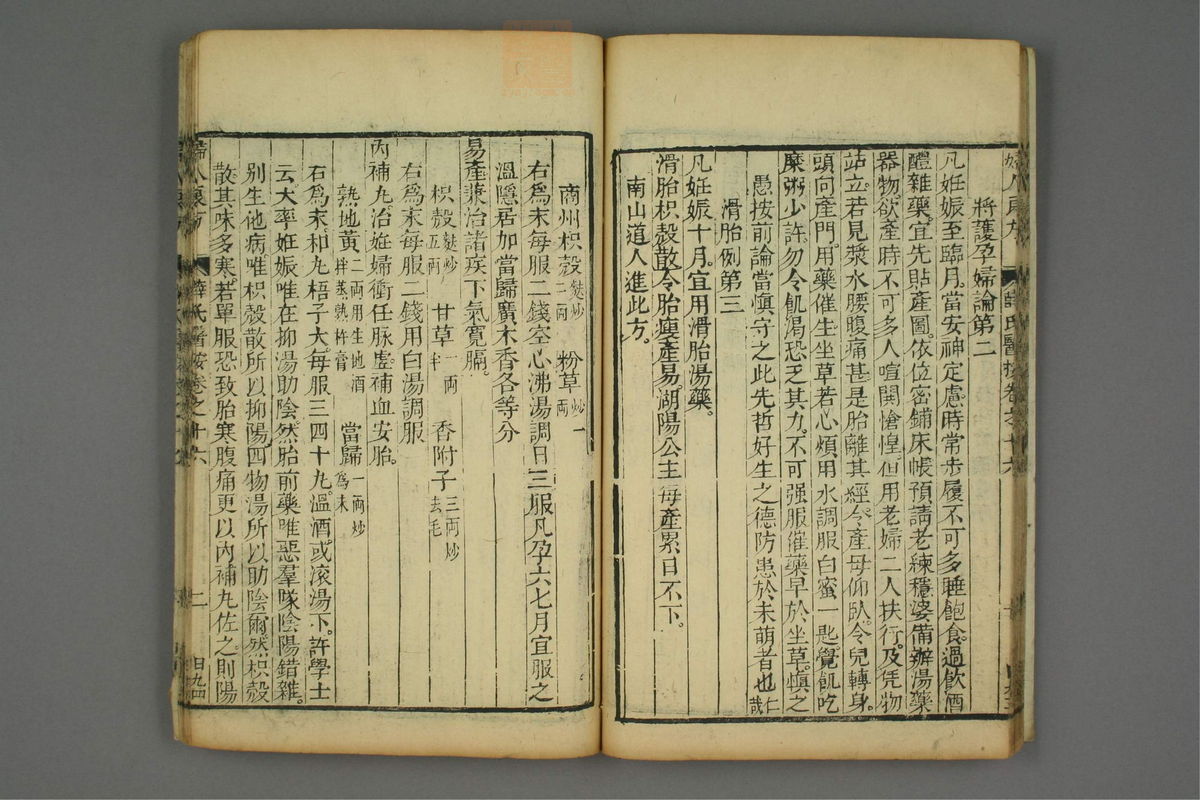 將護孕婦論第二
凡妊娠至臨月當安神定慮時常步履不可多睡飽食過飲酒
醴雜藥宜先貼產圖依位密鋪床帳預請老練穩婆備辦湯藥
器物欲產時不可多人喧鬨愴惶但用老婦二人扶行及凭物
站立若見漿水腰腹痛甚是胎離其經令產母仰臥令兒轉身
頭向產門用藥催生坐草若心煩用水調服白蜜一匙覺飢吃
糜粥少許勿令飢渴恐乏其力不可强服催藥早於坐草慎之
愚按前論當慎守之此先哲好生之德防患於未萌者也仁哉
滑胎例第三
凡妊娠十月宜用滑胎湯藥
滑胎枳殼散令胎瘦產易湖陽公主每產累日不下
南山道人進此方
商州枳殼二兩麸炒 粉草炒一兩
右為末每服二錢空心沸湯調日三服凡孕六七月宜服之
溫隱居加當歸廣木香各等分
易產兼治諸疾下氣寬膈
枳殼麸炒五兩 甘草一兩半 香附子三兩炒去毛
右為末每服二錢用白湯調服
內補丸治妊婦衝任脉虛補血安胎
熟地黃二兩用生地酒拌蒸熟杵膏 當歸一兩炒為末
右為末和丸梧子大每服三四十丸溫酒或滾湯下許學士
云大率妊娠唯在抑湯助陰然胎前藥唯惡羣隊陰陽錯雜
別生他病唯枳殼散所以抑陽四物湯所以助陰爾然枳殼
散其味多寒若單服恐致胎寒腹痛更以內補丸佐之則陽
薛氏醫按卷之廿六
二